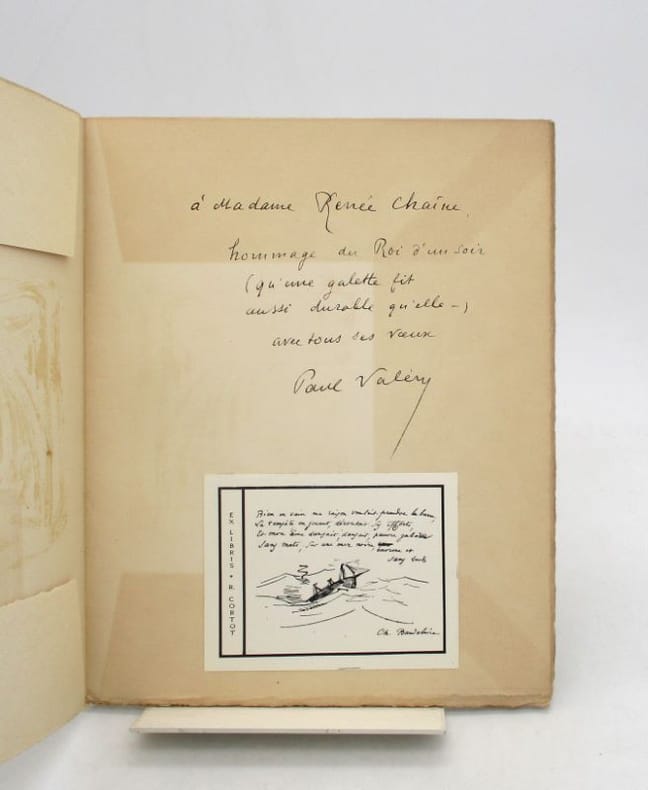 à Madame Renée Chaine,
hommage du Roi d'un soir
(qu'une galette fit
aussi durable qu'elle —)
avec tous ses vœux
Paul Valéry
EX LIBRIS • R. CORTOT
Bien en vain ma raison voulait prendre la barre,
La tempête en jouant, déroutait ses efforts,
Et mon âme dansait, dansait, pauvre gabarre
Sans mats, sur une mer noire, énorme et
sans bords
Ch. Baudelaire